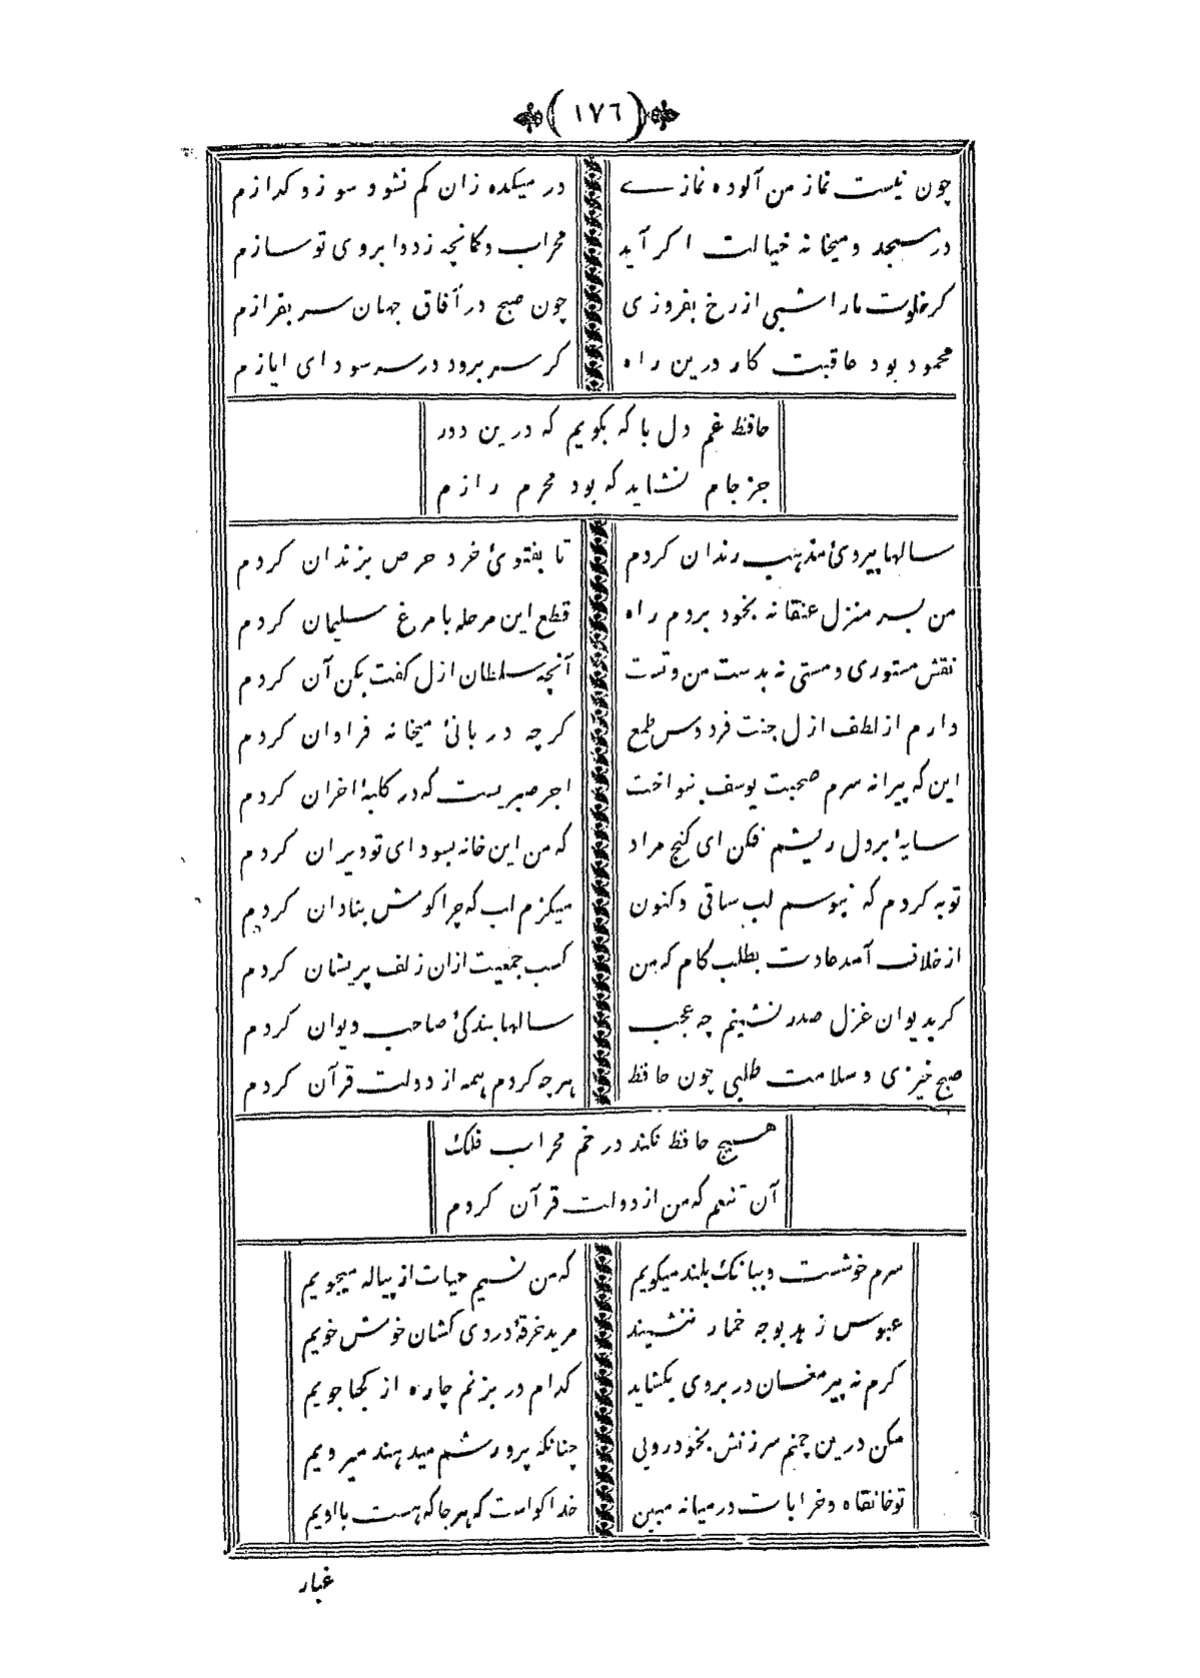 (١٧٦)
چون نیست نماز من آلوده نمازے در میکده زان کم نشود سوز و کدازم
در مسجد و میخانه خیالت اکر آید محراب و کمانچه ز دو ابروی تو سازم
کر خلوت ما را شبی از رخ بفروزی چون صبح در آفاق جهان سر بفرازم
محمود بود عاقبت کار درین راه کر سر برود در سر سودای ایازم
حافظ غم دل با که بکویم که درین دور
جز جام نشاید که بود محرم رازم
سالها پیروئ مذهب رندان کردم تا بفتوئ خرد حرص بزندان کردم
من بسر منزل عنقا نه بخود بردم راه قطع این مرحله با مرغ سلیمان کردم
نقش مستوری و مستی نه بدست من و تست آنچه سلطان ازل کفت بکن آن کردم
دارم از لطف ازل جنت فردوس طمع کرچه دربانئ میخانه فراوان کردم
این که پیرانه سرم صحبت یوسف بنواخت اجر صبریست که در کلبۀ اخزان کردم
سایۀ بر دل ریشم فکن ای کنج مراد که من این خانه بسودای تو دیران کردم
توبه کردم که نبوسم لب ساقی و کنون میکزم لب که چرا کوش بنادان کردم
از خلاف آمد عادت بطلب کام که من کسب جمعیت ازان زلف پریشان کردم
کر بدیوان غزل صدر نشینم چه عجب سالها بندکئ صاحب دیوان کردم
صبح خیزی و سلامت طلبی چون حافظ هرچه کردم همه از دولت قرآن کردم
هیچ حافظ نکند در خم محراب فلک
آن تنعم که من از دولت قرآن کردم
سرم خوشست و ببانک بلند میکویم که من نسیم حیات از پیاله میجویم
عبوس زهد بوجه خمار ننشیند مرید خرقۀ دردی کشان خوش خویم
کرم نه پیر مغان در بروی بکشاید کدام در بزنم چاره از کجا جویم
مکن درین چمنم سرزنش بخودرویی چنانکه پرورشم میدهند میرویم
تو خانقاه و خرابات در میانه مبین خدا کواست که هرجا که هست بااویم
غبار